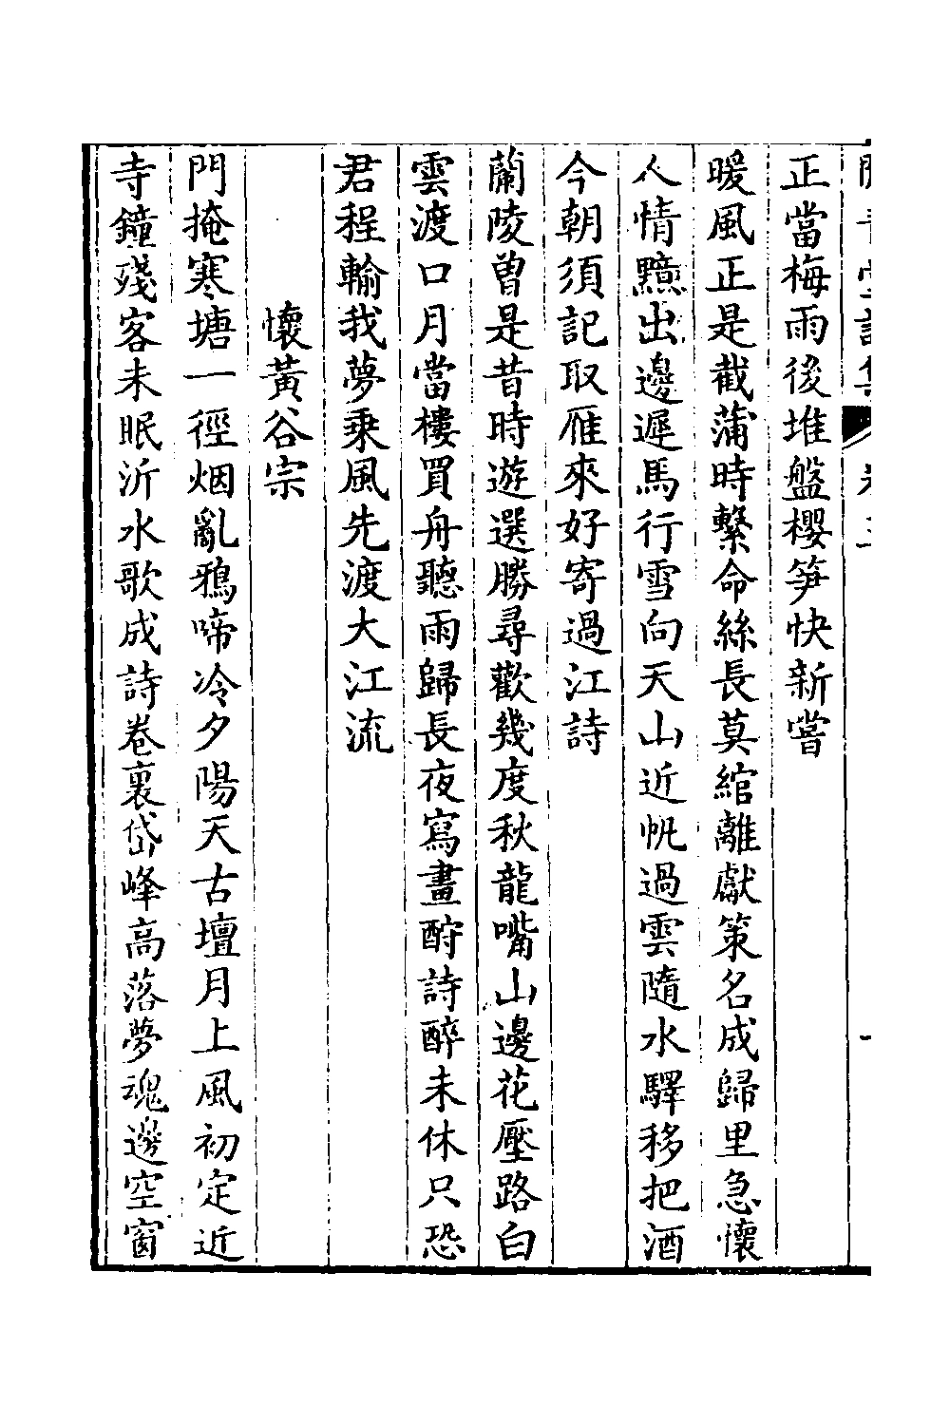 正當梅雨後堆盤櫻笋快新嘗
暖風正是截蒲時繫命絲長莫綰離獻策名成歸里急懷
人情黯出邊遲馬行雪向天山近帆過雲隨水驛移把酒
今朝須記取雁來好寄過江詩
蘭陵曾是昔時遊選勝尋歡幾度秋龍嘴山邊花壓路白
雲渡口月當樓買舟聽雨歸長夜寫畫酧詩醉未休只恐
君程輸我夢乘風先渡大江流
懷黃谷宗
門掩寒塘一徑烟亂鴉啼冷夕陽天古壇月上風初定近
寺鐘殘客未眠沂水歌成詩卷裏岱峰高落夢魂邊空窗